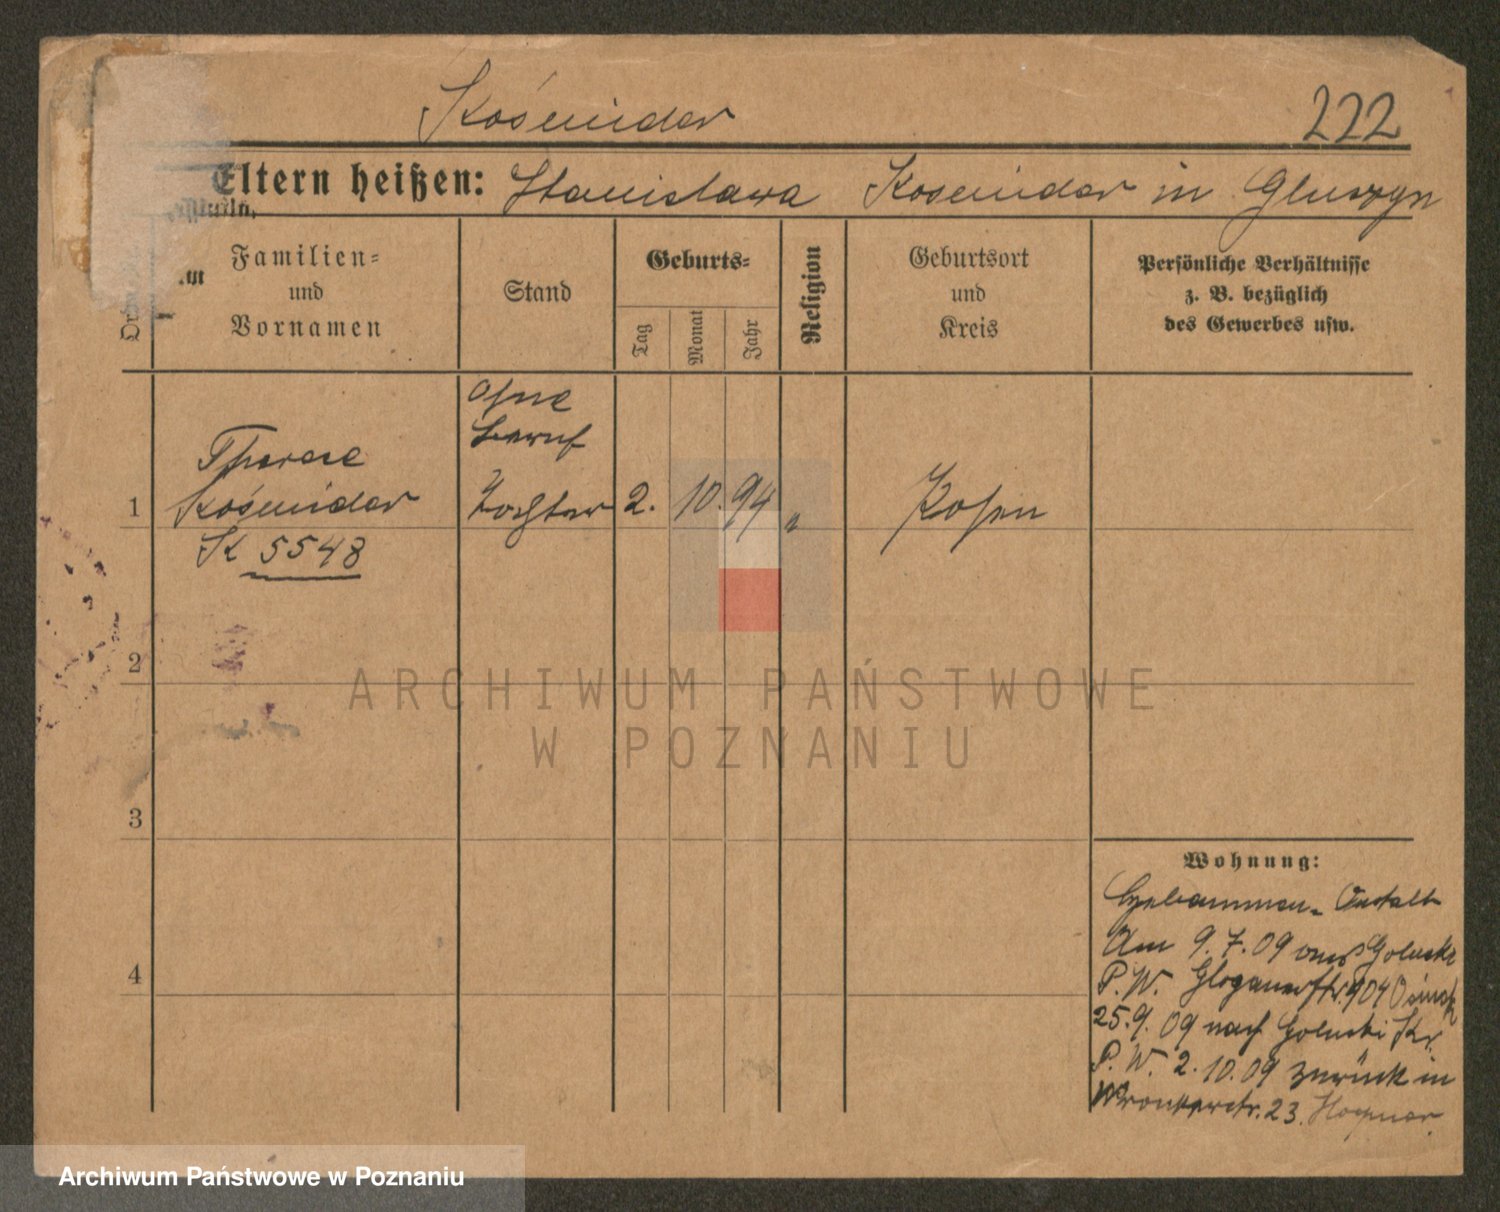 Kośmider
222
Eltern heißen: Stanislawa Kosmider in Gluszyn
Familien= und Vornamen
Stand
Geburts=
Tag
Monat
Jahr
Religion
Geburtsort und Kreis
Persönliche Verhältnisse
z. B. bezüglich
des Gewerbes usw.
ohne
Beruf
Therese
1 Kośmider Tochter 2. 10. 94 " Posen
K 5548
2
3
4
Wohnung:
Hebammen-Anstalt
Am 9. 7. 09 aus Goluski
P. W. Glogauerstr. 904
25. 9. 09 nach Goluski Kr.
P. W. 2. 10. 09 zurück in
Wronkerstr. 23.
ARCHIWUM PAŃSTWOWE
W POZNANIU
Archiwum Państwowe w Poznaniu